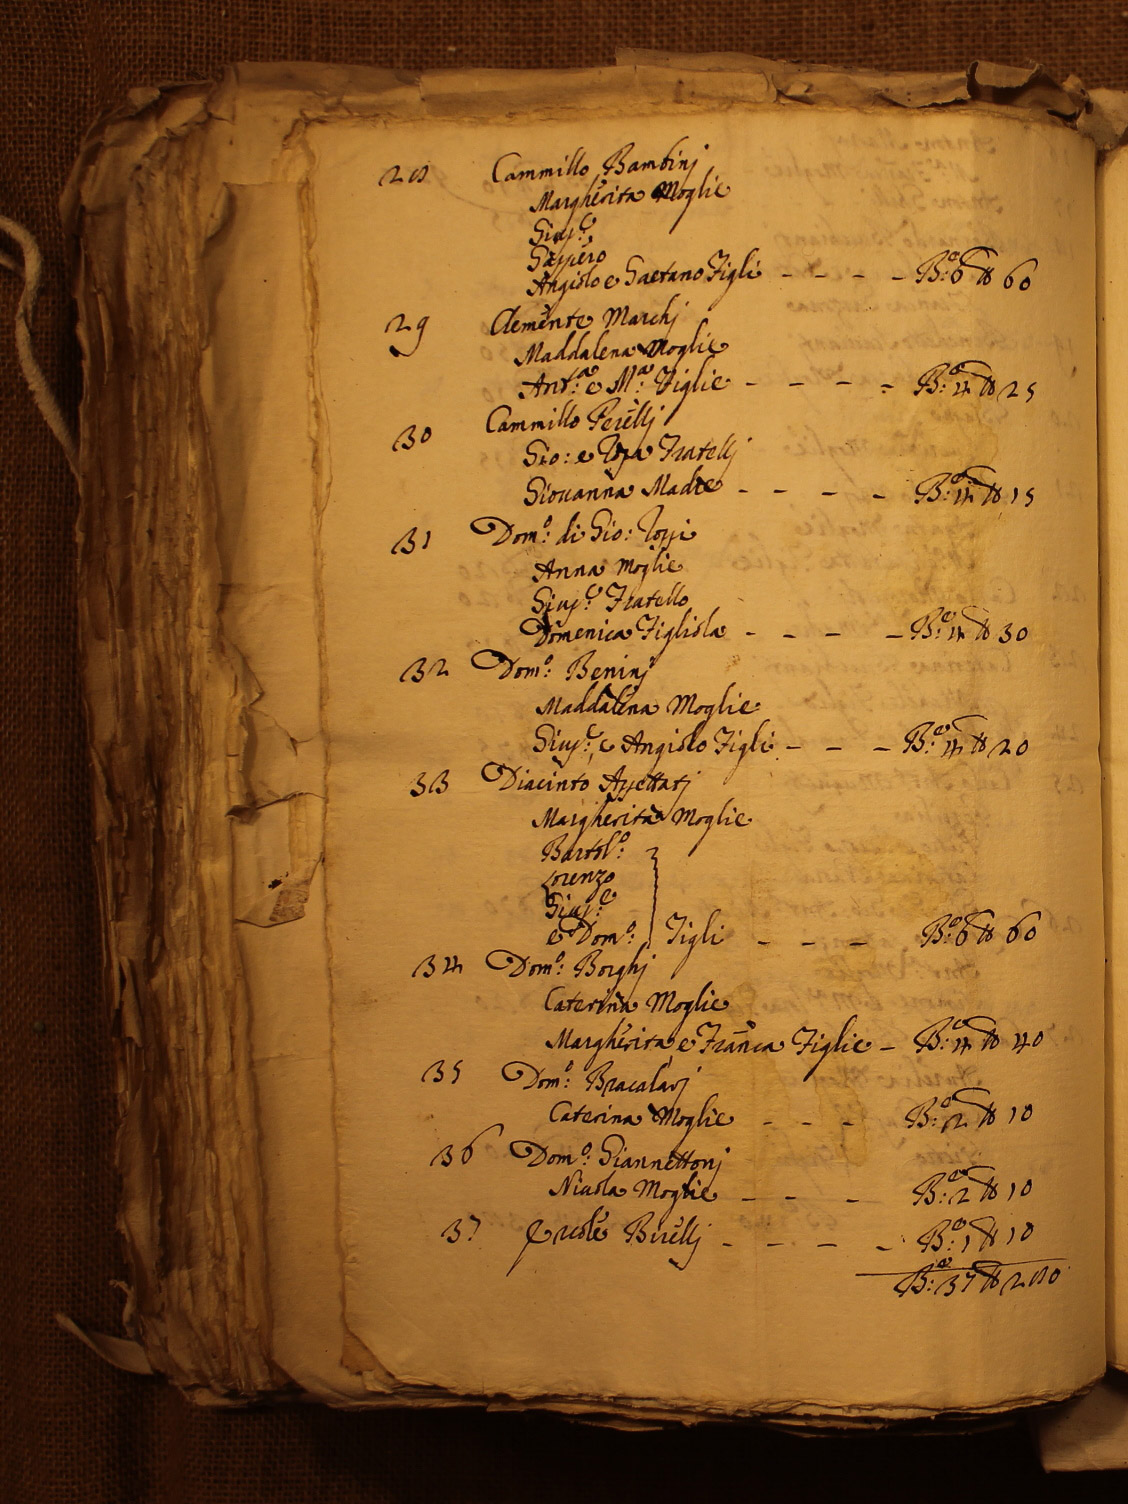 28 Cammillo Bambinj
Margherita Moglie
Giusᵉ:
Gaspero
Angiolo e Gaetano Figli - - - - B:ᵉ 6 ℔ 60
29 Clemente Marchj
Maddalena Moglie
Antᵃ: e Mᵃ: Figlie - - - - B:ᵉ 4 ℔ 25
30 Cammillo Perellj
Gio: e Fratellj
Giovanna Madre - - - - B:ᵉ 4 ℔ 15
31 Domᵒ: di Gio:
Anna Moglie
Giusᵉ: Fratello
Domenica Figliola - - - - B:ᵉ 4 ℔ 30
32 Domᵒ: Beninj
Maddalena Moglie
Giusᵉ: e Angiolo Figli - - - B:ᵉ 4 ℔ 20
33 Diacinto Aspettatj
Margherita Moglie
Bartolᵒ:
Lorenzo
Giusᵉ:
e Domᵒ: Figli - - - B:ᵉ 6 ℔ 60
34 Domᵒ: Borghj
Caterina Moglie
Margherita e Franca Figlie - B:ᵉ 4 ℔ 40
35 Domᵒ: Bracalarj
Caterina Moglie - - - B:ᵉ 2 ℔ 10
36 Domᵒ: Giannettonj
Nicola Moglie - - - B:ᵉ 2 ℔ 10
37 Ercole Birellj - - - - B:ᵉ 1 ℔ 10
B:ᵉ 37 ℔ 280